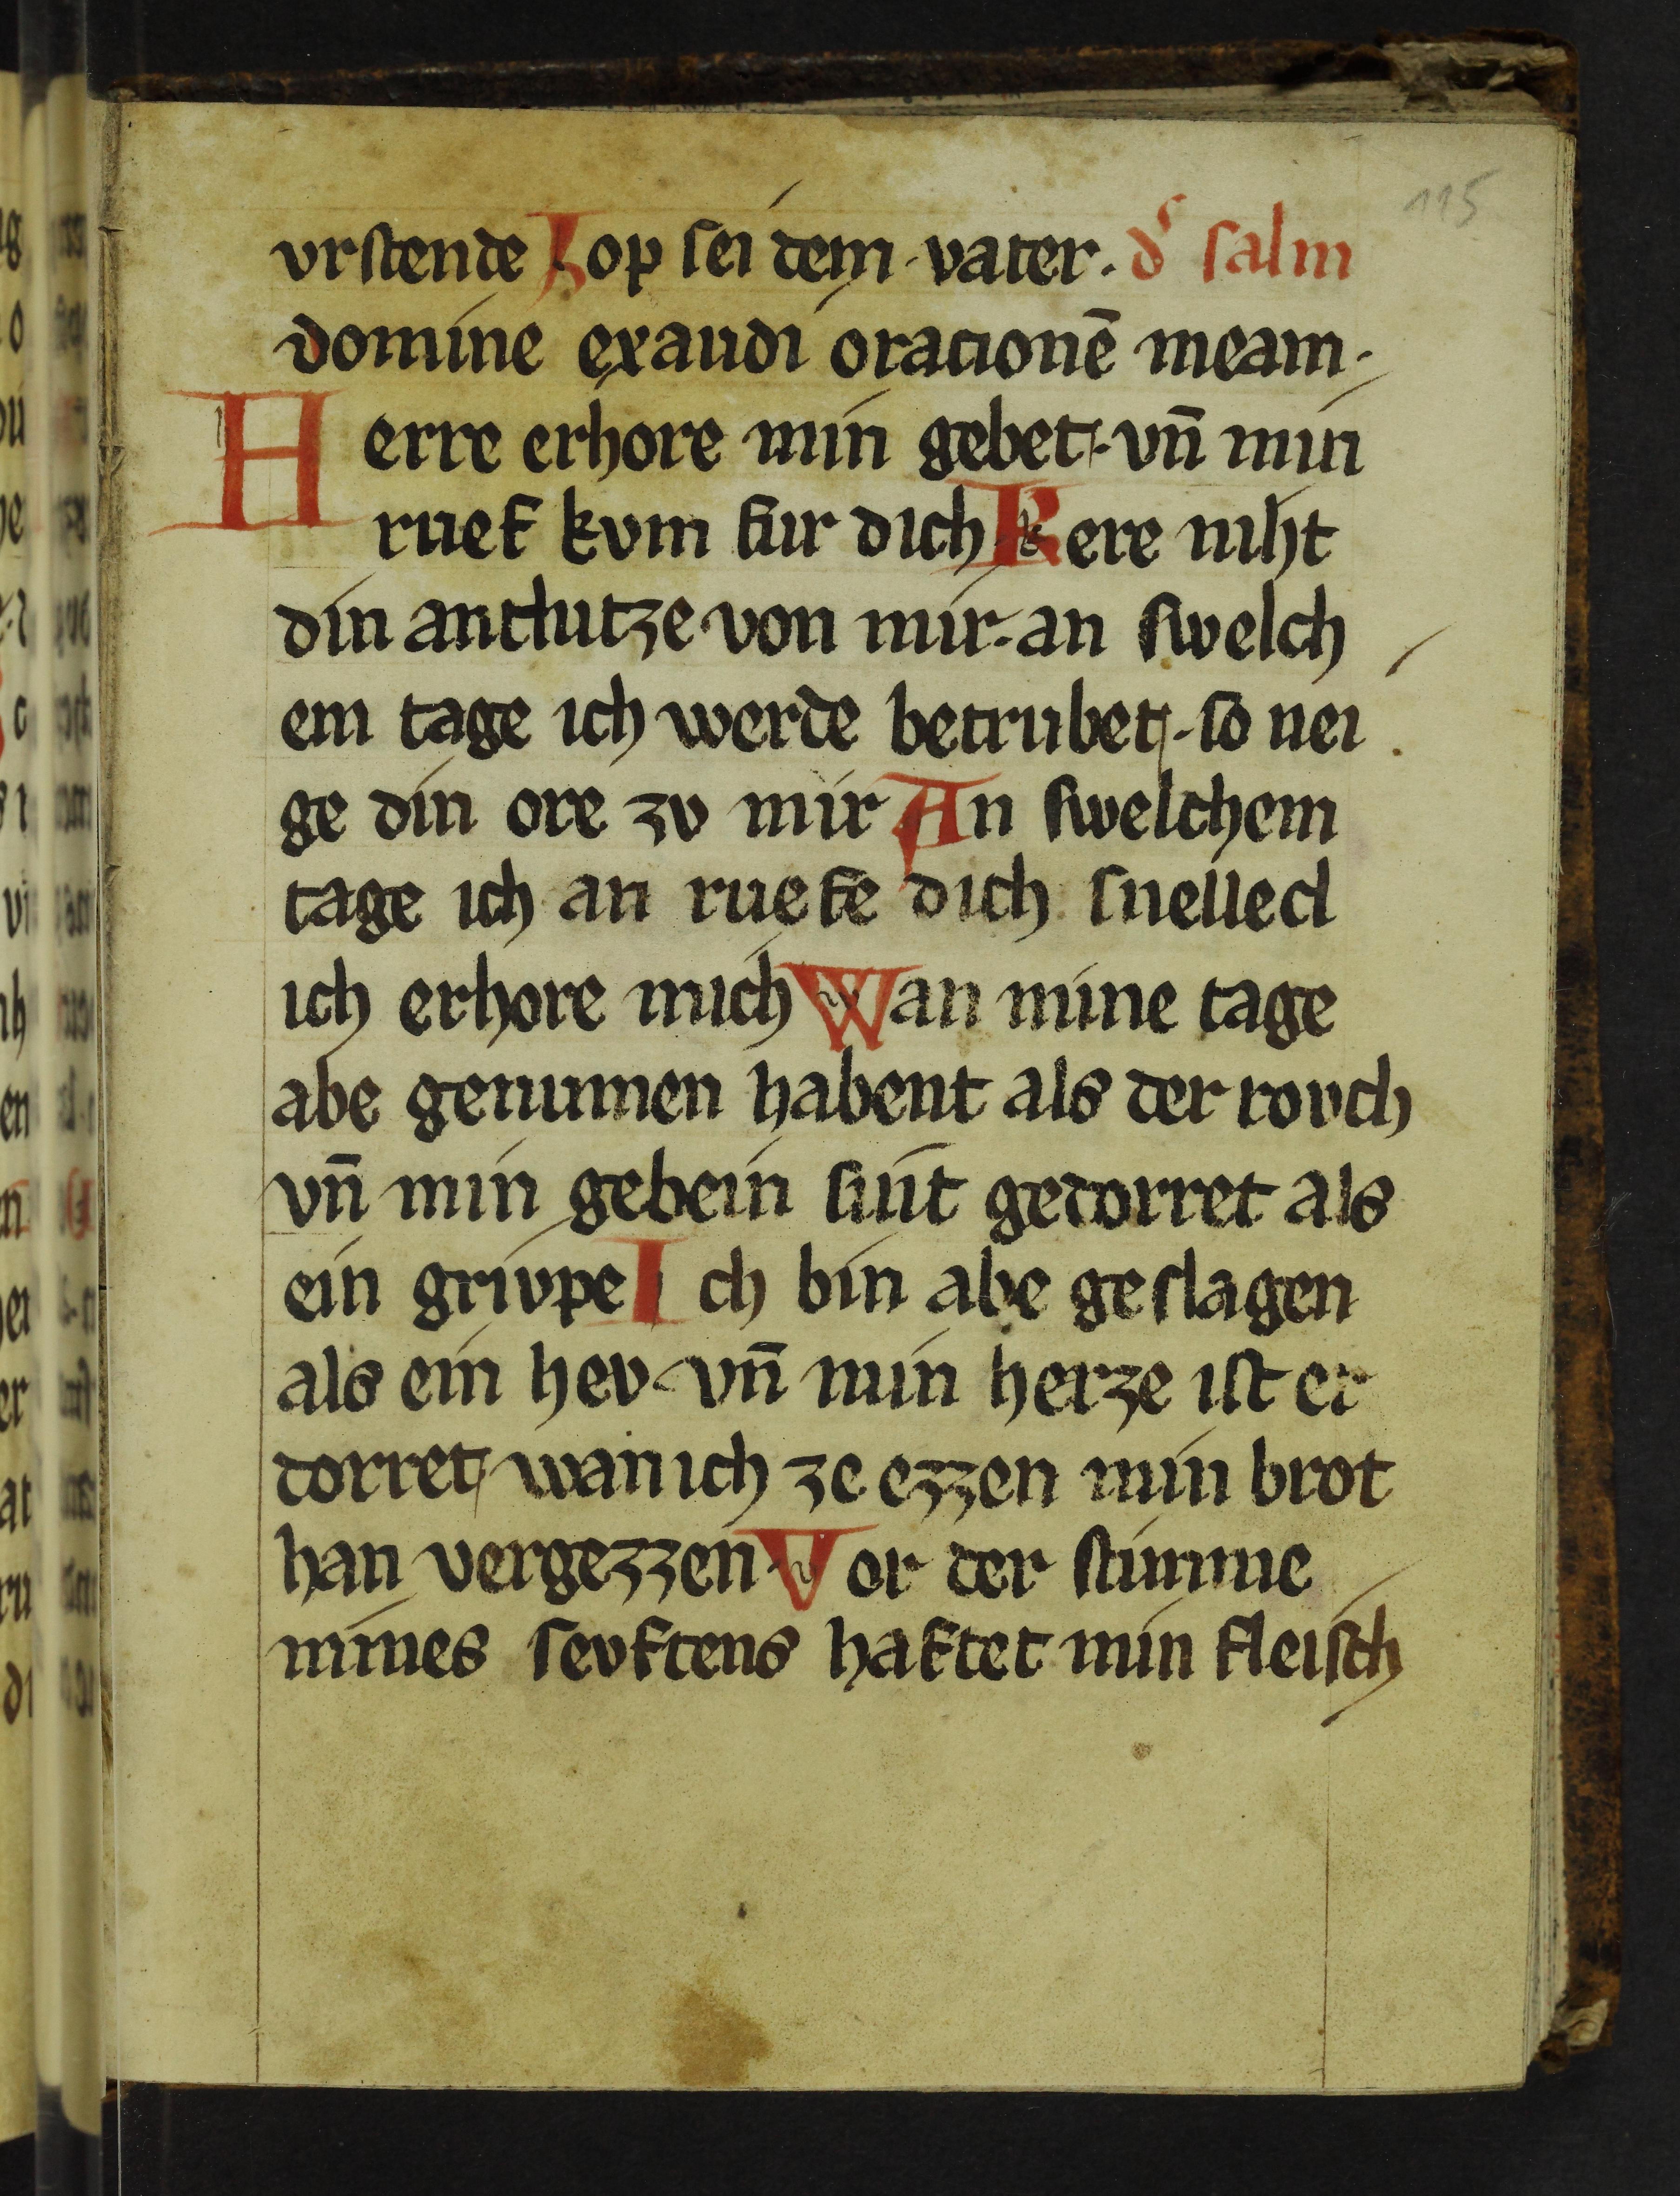 115
vrstende Lop sei dem vater. dˢ salm
domine exaudi oracionē meam.
Herre erhore min gebet. vn̄ min
ruef kvm fur dich Kere niht
din antlutze von mir. an swelch
em tage ich werde betrubet. so nei
ge din ore zv mir An swelchem
tage ich an ruefe dich snellecl
ich erhore mich Wan mine tage
abe genumen habent als der rovch
vn̄ min gebein sint gedorret als
ein grivpe Ich bin abe geslagen
als ein hev. vn̄ min herze ist er
dorret wan ich ze ezzen min brot
han vergezzen. Vor der stimme
mines sevftens haftet min fleisch